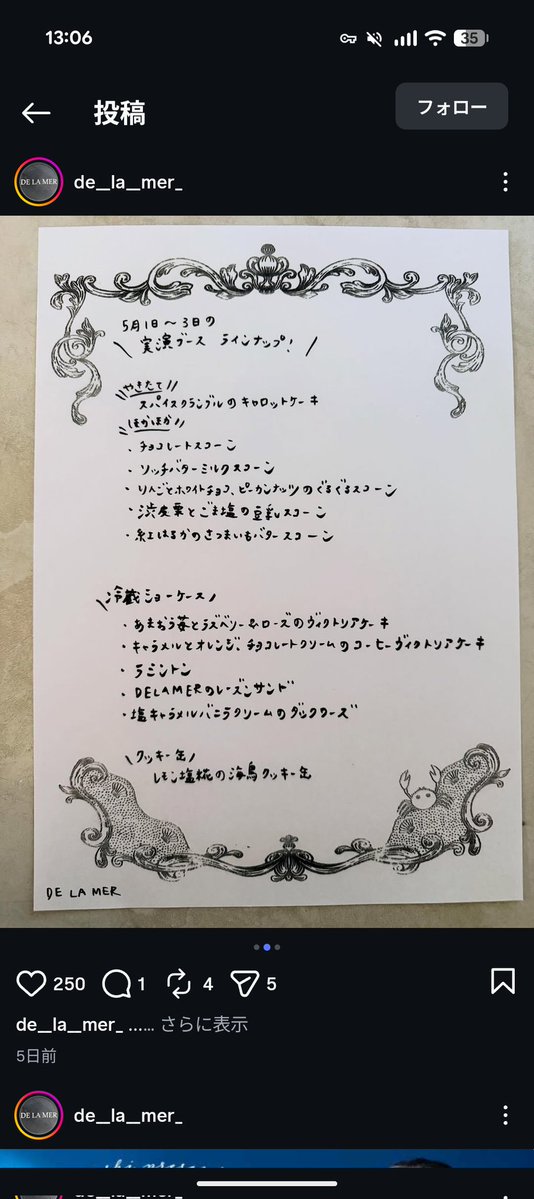 13:06
35
投稿
フォロー
DE LA MER
de__la__mer_
5月1日～3日の
実演ブース ラインナップ！
やきたて
スパイスクランブルのキャロットケーキ
ほかほか
・チョコレートスコーン
・リッチバターミルクスコーン
・りんごとホワイトチョコ、ピーカンナッツのぐるぐるスコーン
・渋皮栗とごま塩の豆乳スコーン
・紅はるかのさつまいもバタースコーン
冷蔵ショーケース
・あまおう苺とラズベリー&ローズのヴィクトリアケーキ
・キャラメルとオレンジ、チョコレートクリームのコーヒーヴィクトリアケーキ
・ラミントン
・DELAMERのレーズンサンド
・塩キャラメルバニラクリームのダックワーズ
クッキー缶
レモン塩糀の海鳥クッキー缶
DE LA MER
250
1
4
5
de__la__mer_ ...… さらに表示
5日前
DE LA MER
de__la__mer_